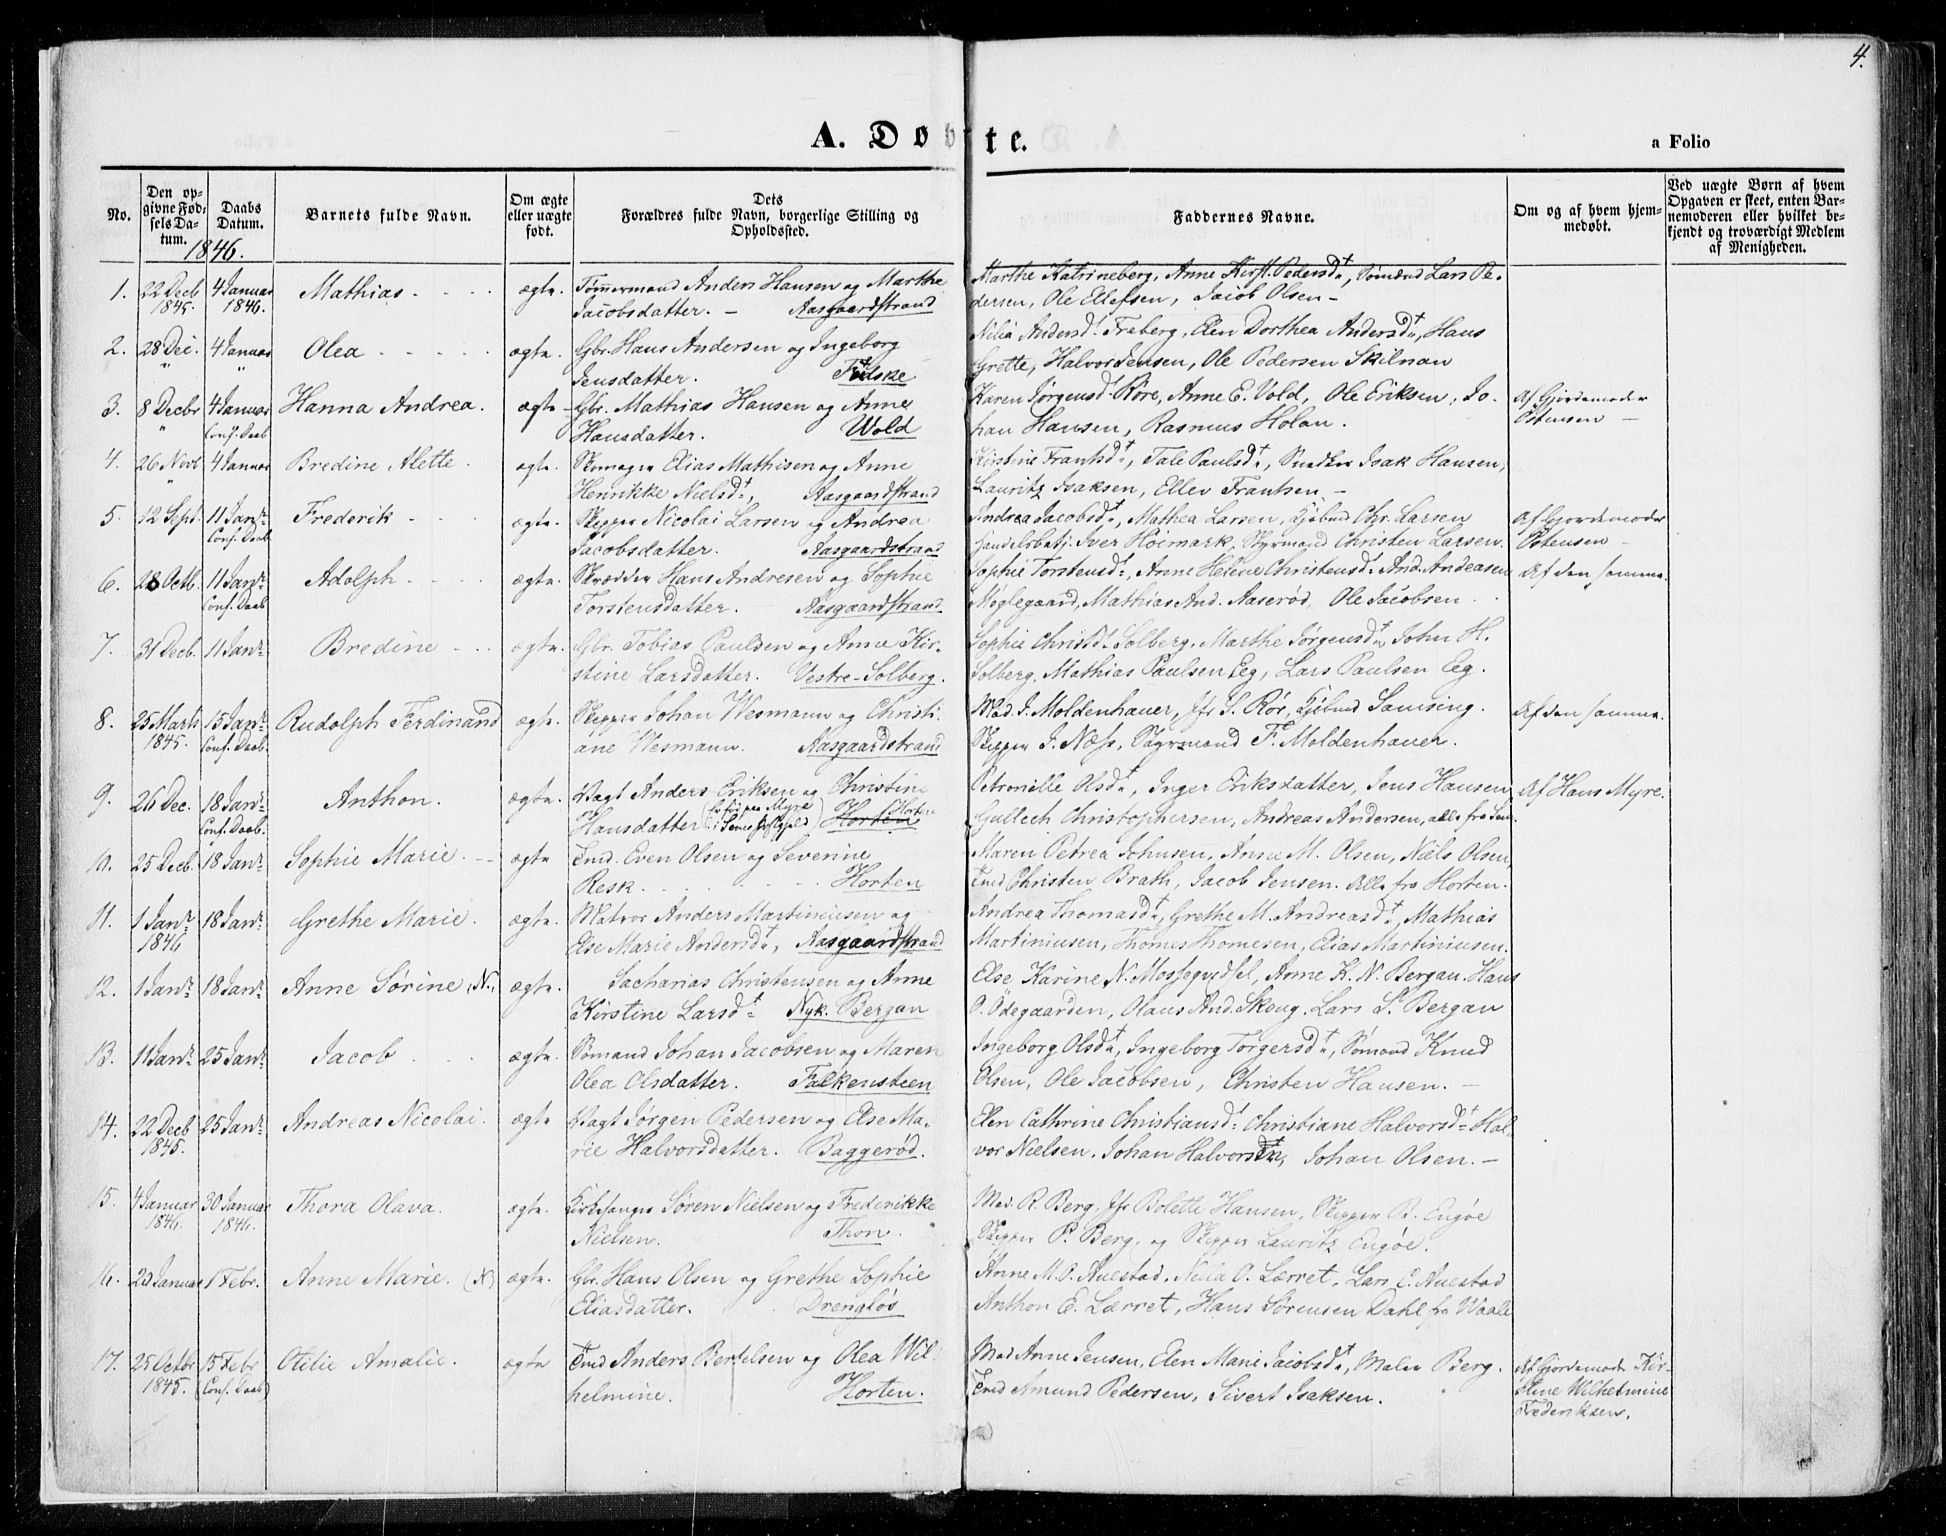 4.
A. Døbte.
a Folio
No.
Den op-
givne Fød-
sels Da-
tum.
Daabs
Datum.
Barnets fulde Navn.
Om ægte
eller uægte
født.
Dets
Forældres fulde Navn, borgerlige Stilling og
Opholdssted.
Faddernes Navne.
Om og af hvem hjem-
medøbt.
Ved uægte Børn af hvem
Opgaven er skeet, enten Bar-
nemoderen eller hvilket be-
kjendt og troværdigt Medlem
af Menigheden.
1846.
1. 22 Decb 4 Januar Mathias ægte. Tømmermand Anders Hansen og Marthe Marthe Katrineberg, Anne Kirst. Pedersdt, Sømænd Lars Pe-
1845. 1846. Jacobsdatter. – Aasgaardstrand dersen, Ole Ellefsen, Jacob Olsen –
2. 28 Dec. 4 Januar Olea ægte. Gbr. Hans Andersen og Ingeborg Nilia Andersdt Freberg, Elen Dorthea Andersdt, Hans
" " Jensdatter. Fulske Grette, Halvor Jensen, Ole Pedersen Skilnan
3. 8 Decbr 4 Januar Hanna Andrea. ægte Gbr. Mathias Hansen og Anne Karen Jørgensdt Røre, Anne E. Vold, Ole Eriksen, Jo- Af Gjordemoder
" Conf. Daab Hansdatter. Wold han Hansen, Rasmus Holan. Ostensen –
4. 26 Novb 4 Januar Bredine Alette. ægte. Skomager Elias Mathisen og Anne Kirstine Frantsdt, Tale Paulsdt, Snedker Isak Hansen,
" Henrikke Nielsdt, Aasgaardstrand Lauritz Isaksen, Ellev Frantsen. –
5. 12 Sept. 11 Janr. Frederik ægte. Skipper Nicolai Larsen og Andrea Andrea Jacobsdt, Mathea Larsen, Kjøbmd Chr. Larsen Af Gjordemoder
Conf. Daab Jacobsdatter. Aasgaardstrand Handelsbetj. Iver Høimark, Styrmand Christen Larsen. Ostensen –
6. 28 Octb. 11 Janr. Adolph ægte. Skrædder Hans Andresen og Sophie Sophie Torstensdt, Anne Helene Christensdt And. Andreasen Af den samme.
Conf. Daab Torstensdatter. Aasgaardstrand. Møglegaard, Mathias And. Aaserød, Ole Jacobsen
7. 31 Decb. 11 Janr. Bredine ægte. Gbr. Tobias Paulsen og Anne Kir- Sophie Christdt Solberg, Marthe Jørgensdt, John H.
stine Larsdatter. Vestre-Solberg. Solberg, Mathias Paulsen Eeg, Lars Paulsen Eeg.
8. 25 Marts 15 Janr. Rudolph Ferdinand ægte. Skipper Johan Wesmann og Christi- Mad. J. Moldenhauer, Jfr S. Rør, Kjøbmd Samsing. Af den samme.
1845. Conf. Daab. ane Wesmann. Aasgaardstrand Skipper J. Næss, Styrmand F. Moldenhauer.
9. 26 Dec. 18 Janr. Anthon. ægte. Vagt Anders Eriksen og Christine Petronille Olsdt, Inger Eriksdatter, Jens Hansen, Af Hans Myre.
Conf. Daab. Hansdatter ( paa Myre i Sems Præstegjeld) Horten Horten Gullech Christophersen, Andreas Andersen, alle fra Sem.
10. 25 Decb. 18 Janr. Sophie Marie. ægte Tmd. Even Olsen og Severine Maren Petrea Johnsen, Anne M. Olsen, Niels Olsen,
Resk. Horten Tmd Christen Brath, Jacob Jensen. Alle fra Horten.
11. 1 Janr. 18 Janr. Grethe Marie. ægte. Matros Anders Martiniusen og Andrea Thomasdt, Grethe M. Andreasdt, Mathias
1846 Else Marie Andersdt, Aasgaardstrand Martiniusen, Thomes Thomesen, Elias Martiniusen.
12. 1 Janr. 18 Janr. Anne Sørine (N.) ægte. Sacharias Christensen og Anne Else Karine N. Mossequdsel, Anne K. N. Bergan. Hans
Kirstine Larsdt Nyk. Bergan O. Ødegaarden, Olaus And. Skoug, Lars S. Bergan
13. 11 Janr. 25 Janr. Jacob ægte. Sømand Johan Jacobsen og Maren Ingeborg Olsdt, Ingeborg Torgersdt, Sømand Knud
Olea Olsdatter. Falkensteen Olsen, Ole Jacobsen, Christen Hansen. –
14. 22 Decb 25 Janr. Andreas Nicolai. ægte Vagt Jørgen Pedersen og Else Ma- Elen Cathrine Christiansdt Christiane Halvorsdt Hal-
1845. rie Halvorsdatter. Baggerød. vor Nielsen. Johan Halvorsen, Johan Olsen. –
15. 4 Januar 30 Januar Thora Olava. ægte. Kirkesanger Søren Nielsen og Frederikke Mad. R. Berg, Jfr Bolette Hansen, Skipper B. Engøe
1846. 1846. Nielsen. Thon. Skipper P. Berg, og Skipper Lauritz Engøe.
16. 23 Januar 1 Febr. Anne Marie. (N) ægte. Gbr. Hans Olsen og Grethe Sophie Anne M. O. Auestad, Nilia O. Lærret, Lars E. Auestad
Eliasdatter. Drengløs Anthon E. Lærret, Hans Sørensen Dahl fra Vaale
17. 25 Octbr 15 Febr Otilie Amalie. ægte Tmd Anders Bertelsen og Olea Wil- Mad Anne Jensen, Elen Marie Jacobsdt, Maler Berg. Af Gjordemoder Kir-
1845. (Conf. Daab) helmine. Horten. Tmd Amund Pedersen, Sivert Isaksen. stine Wilhelmine
Frederiksen.